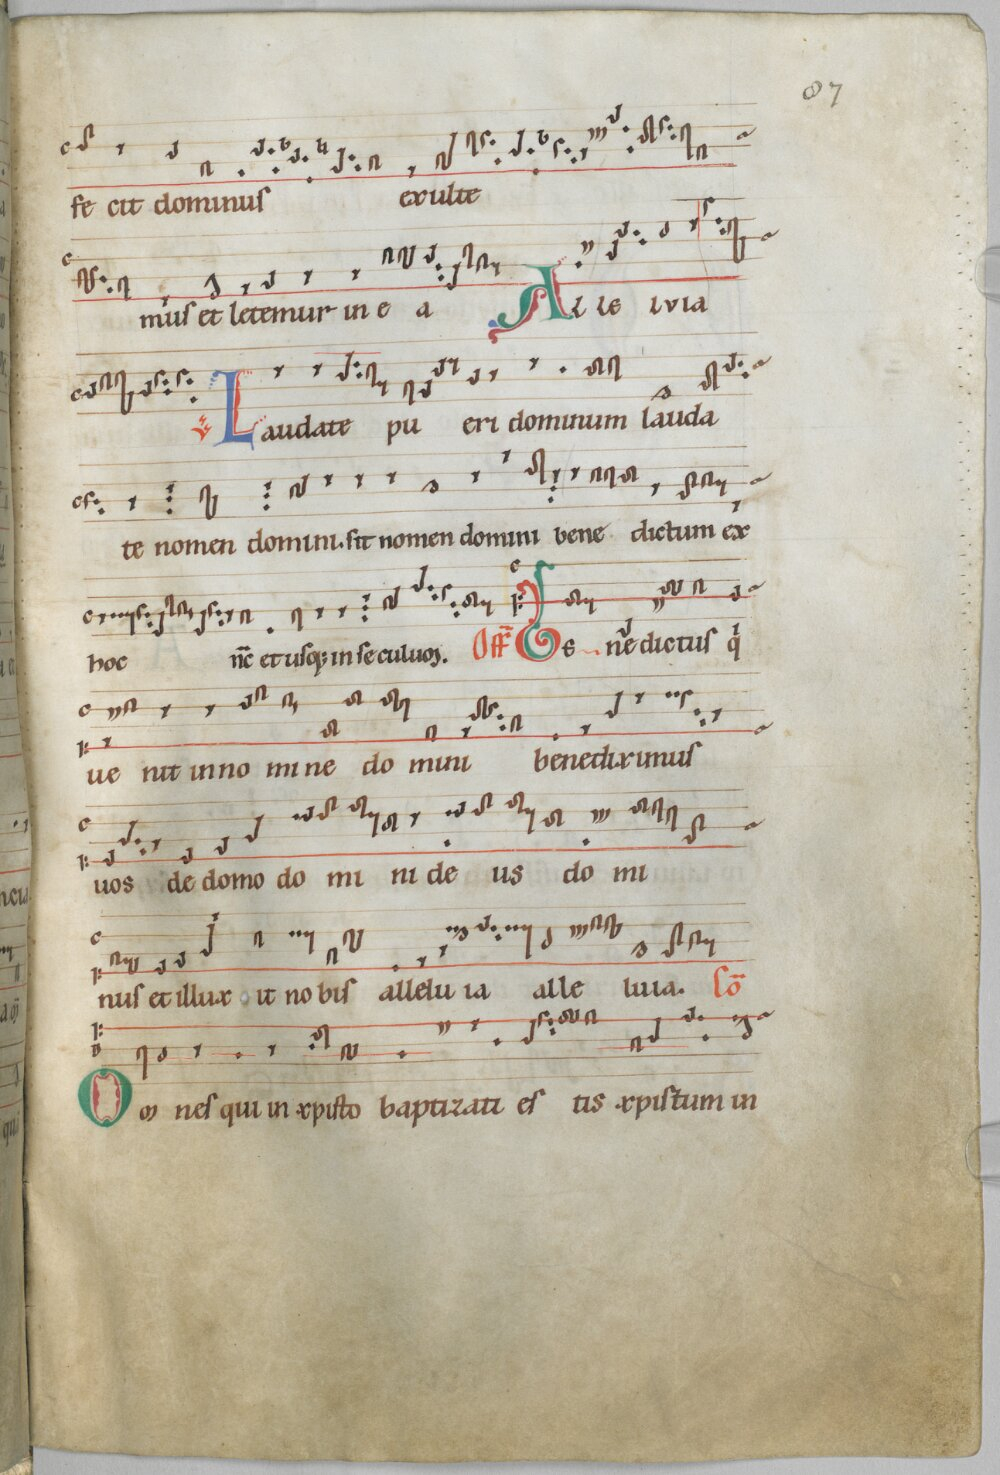 87
fe cit dominus exulte
mus et letemur in e a Al le lvia
℣ Laudate pu eri dominum lauda
te nomen domini. sit nomen domini bene dictum ex
hoc nc̄ et usq; in seculuoȝ. Off̄ Be nedictus qͥ
ue nit in no mine do mini benediximus
uos de domo do mi ni de us do mi
nus et illux it nobis allelu ia alle luia. Cō
Om nes qui in xpisto baptizati es tis xpistum in